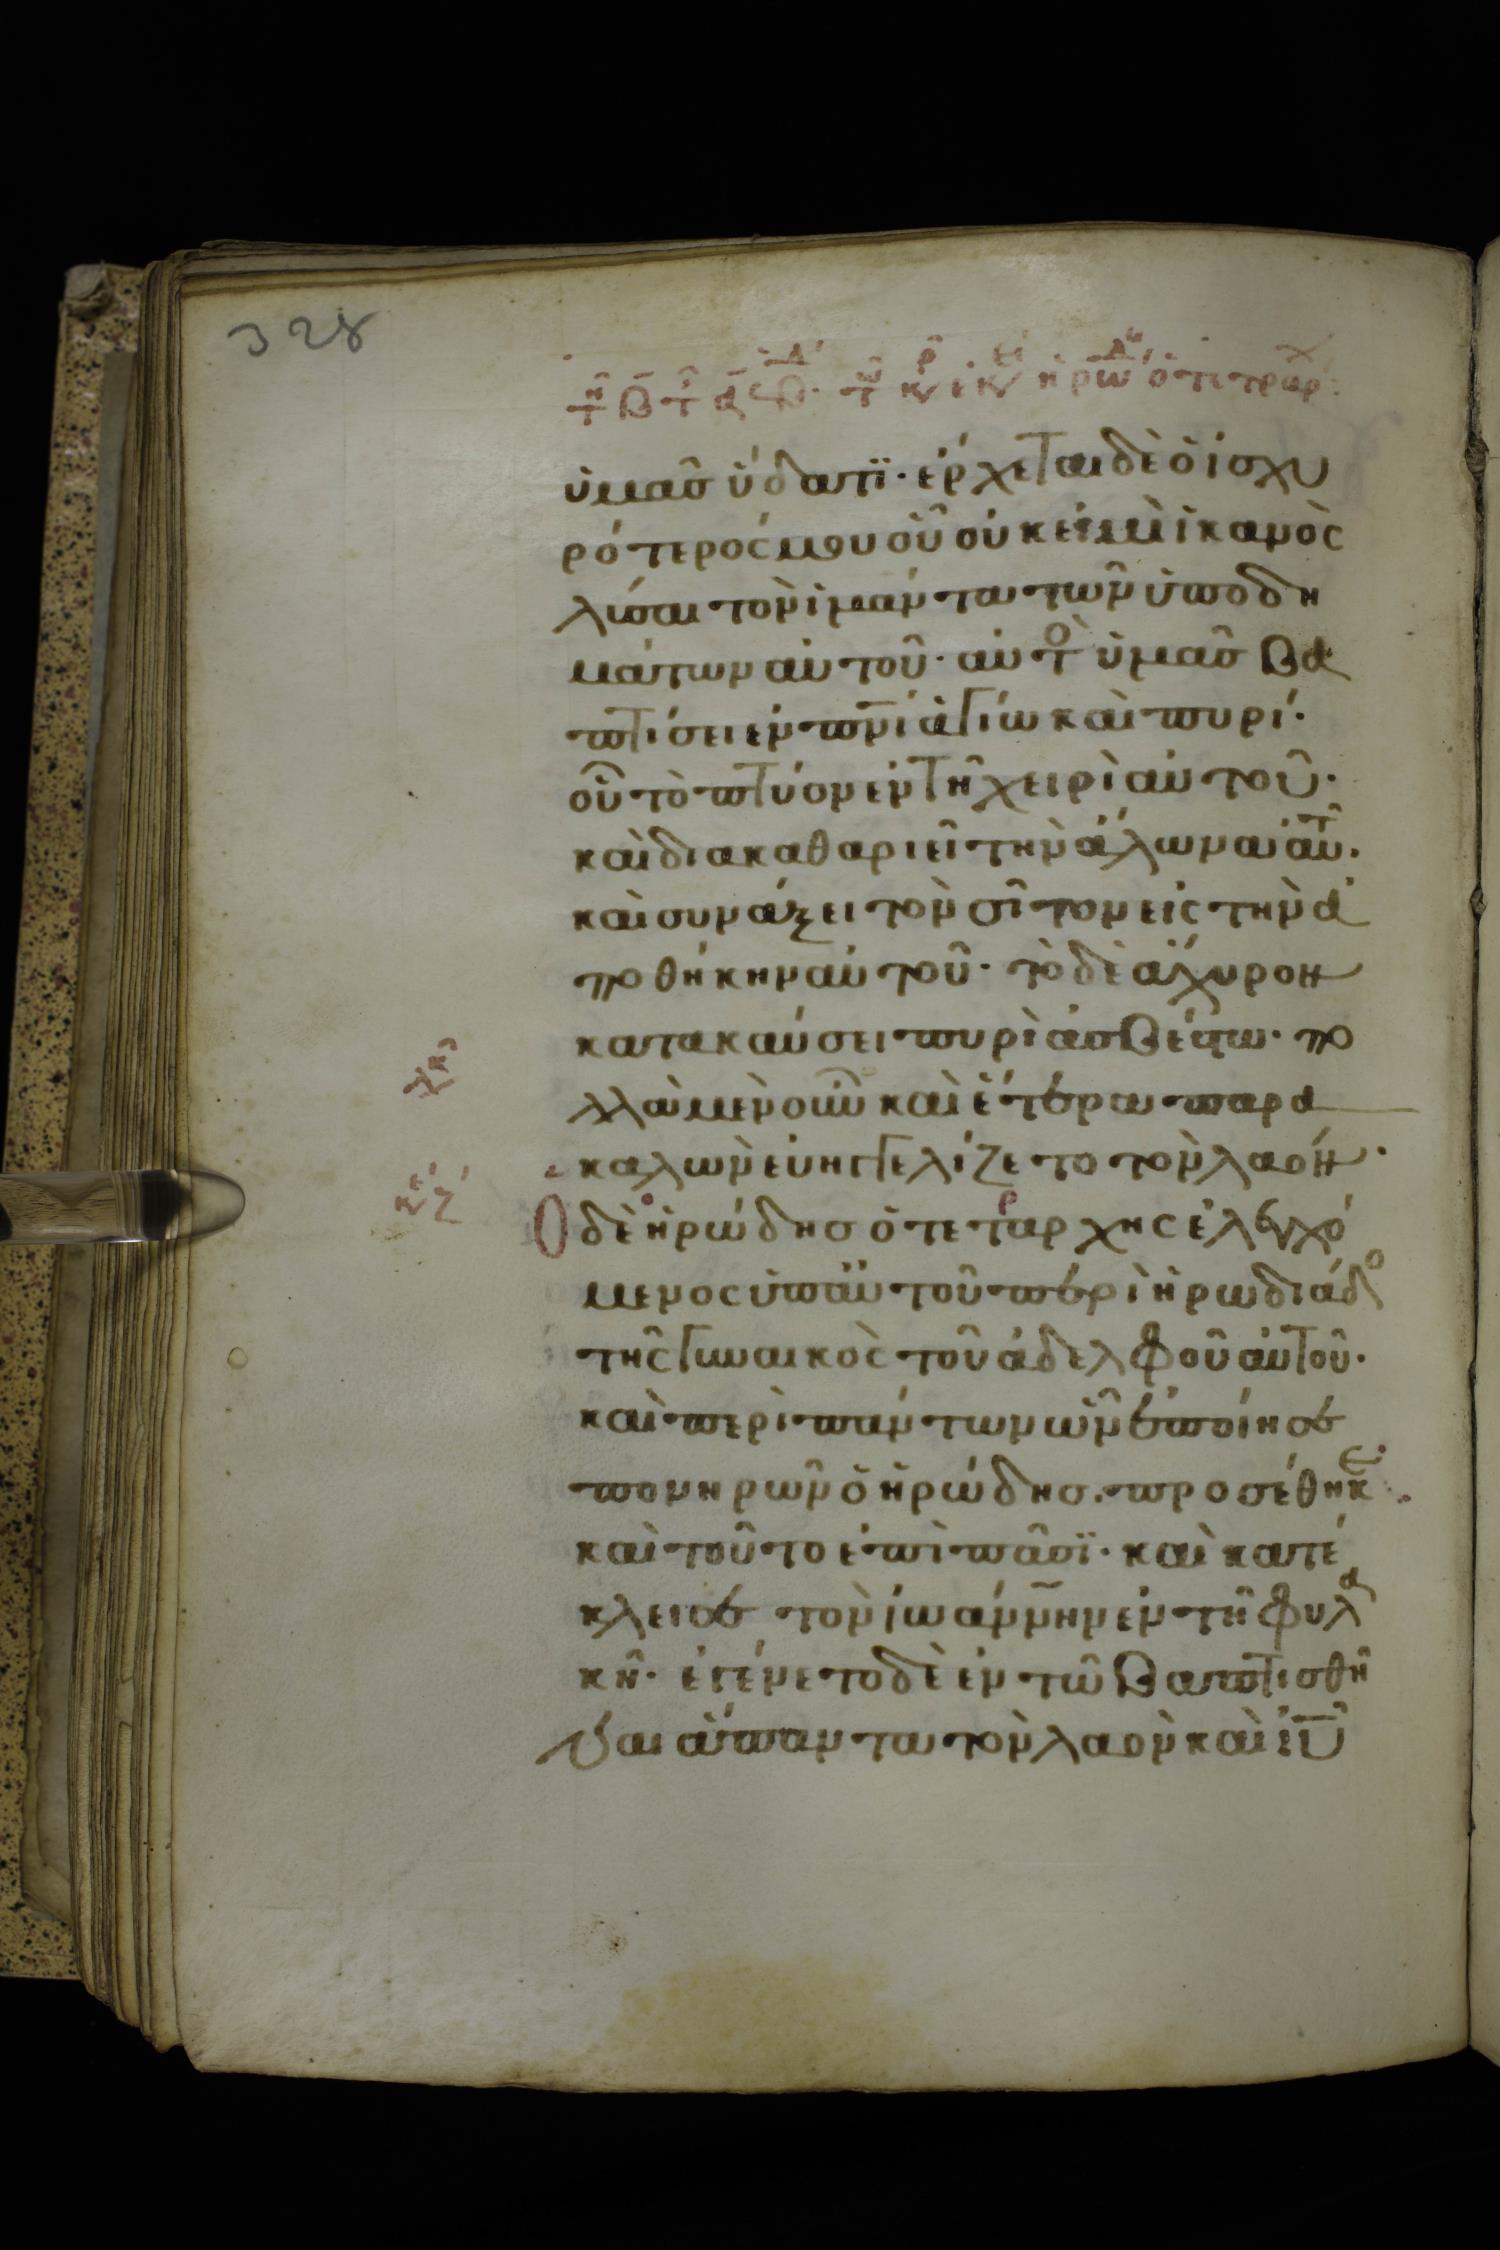 328
ὑμᾶσ ὕδατϊ· ἔρχεται δὲ ὁ ἰσχυ
ρότερός μου οὗ οὐκ εἰμὶ ἱκανὸς
λύσαι τὸν ἱμάντα τῶν ὑποδη
μάτων αὐτοῦ· αὐτὸ ὑμᾶσ βα
πτίσει ἐν πνῑ ἁγίω καὶ πυρί·
οὗ τὸ πτύον ἐν τῆ χειρὶ αὐτοῦ·
καὶ διακαθαριεῖ τὴν ἅλωνα αὑτ·
καὶ συνάξει τὸν σῖτον εἰς τὴν ἀ
ποθήκην αὐτοῦ· τὸ δὲ ἄχυρον
κατακαύσει πυρὶ ἀσβέστω· πο
λλὰ μὲν οὖν καὶ ἕτερα παρα
καλῶν εὐηγγελίζετο τὸν λαόν·
Ὁ δὲ ἡρώδησ ὁ τετράρχης ἐλεγχό
μενος ὑπ αὐτοῦ περὶ ἡρωδιάδο
τῆς γυναικὸς τοῦ ἀδελφοῦ αὐτοῦ·
καὶ περὶ πάντων ὧν ἐποίησε
πονηρῶν ὁ ἡρώδησ. προσέθηκε
καὶ τοῦτο ἐπὶ πᾶσϊ· καὶ κατέ
κλεισε τὸν ἰωάννην ἐν τῆ φυλα
κῆ· ἐγένετο δὲ ἐν τῶ βαπτισθῆ
ναι ἅπαντα τὸν λαὸν καὶ ιῡ